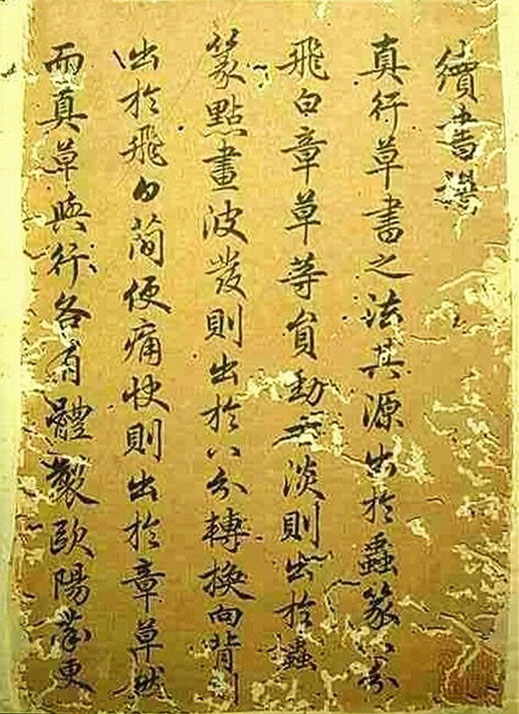 續書譜
真行草書之法其源出於蟲篆八分
飛白章草等員勁古淡則出於蟲
篆點畫波發則出於八分轉換向背則
出於飛白簡便痛快則出於章草然
而真草與行各有體製歐陽率更